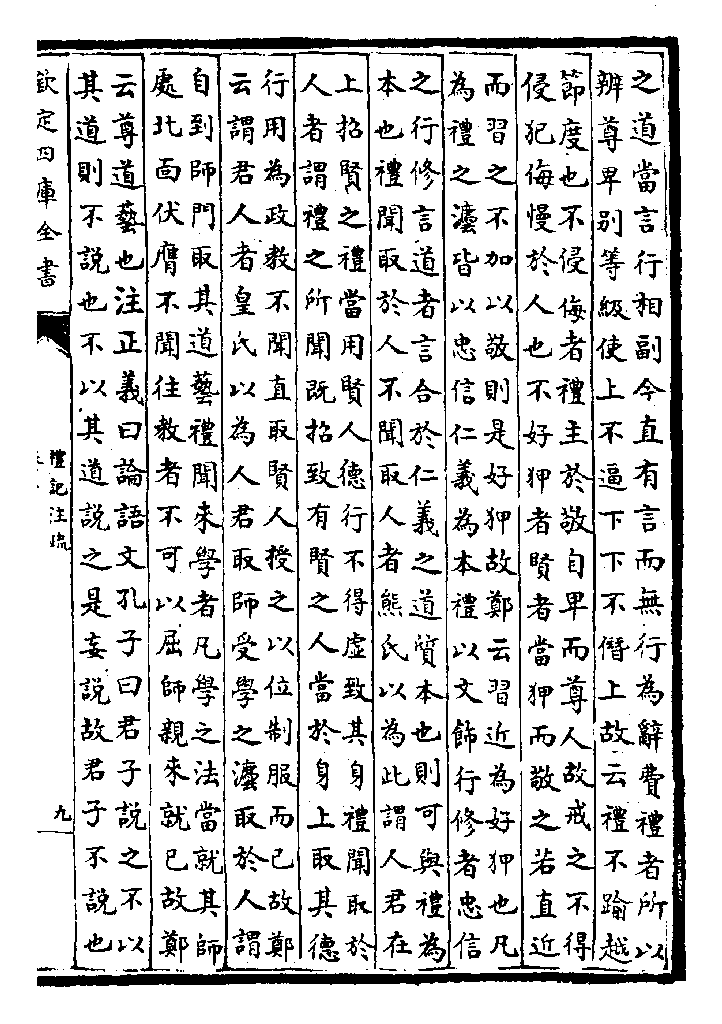 之道當言行相副今直有言而無行為辭費禮者所以
辨尊卑別等級使上不逼下下不僭上故云禮不踰越
節度也不侵侮者禮主於敬自卑而尊人故戒之不得
侵犯侮慢於人也不好狎者賢者當狎而敬之若直近
而習之不加以敬則是好狎故鄭云習近為好狎也凡
為禮之灋皆以忠信仁義為本禮以文飾行修者忠信
之行修言道者言合於仁義之道質本也則可與禮為
本也禮聞取於人不聞取人者熊氏以為此謂人君在
上招賢之禮當用賢人德行不得虛致其身禮聞取於
人者謂禮之所聞既招致有賢之人當於身上取其德
行用為政教不聞直取賢人授之以位制服而已故鄭
云謂君人者皇氏以為人君取師受學之灋取於人謂
自到師門取其道藝禮聞來學者凡學之法當就其師
處北面伏膺不聞往教者不可以屈師親來就已故鄭
云尊道藝也注正義曰論語文孔子曰君子說之不以
其道則不說也不以其道說之是妄說故君子不說也
欽定四庫全書
禮記注疏
九